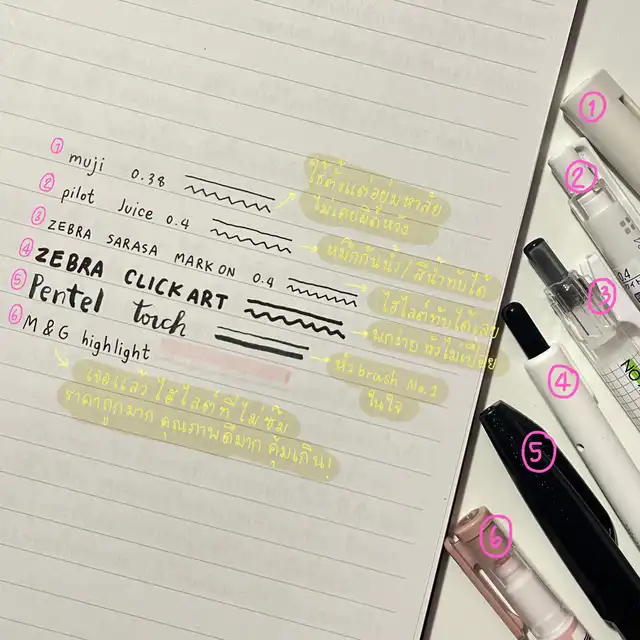 ① muji 0.38
ใช้ตั้งแต่อยู่มหาลัย
ไม่เคยผิดหวัง
② pilot Juice 0.4
หมึกกันน้ำ / สีน้ำทับได้
③ ZEBRA SARASA MARK ON 0.4
ไฮไลต์ทับได้เลย
④ ZEBRA CLICK ART
พกง่าย หัวไม่เปื่อย
⑤ Pentel touch
หัว brush No.1
ในใจ
⑥ M&G highlight
เจอแล้ว ไฮไลต์ที่ไม่ซึม
ราคาถูกมาก คุณภาพดีมาก คุ้มเกิน!
①
②
③
④
⑤
⑥